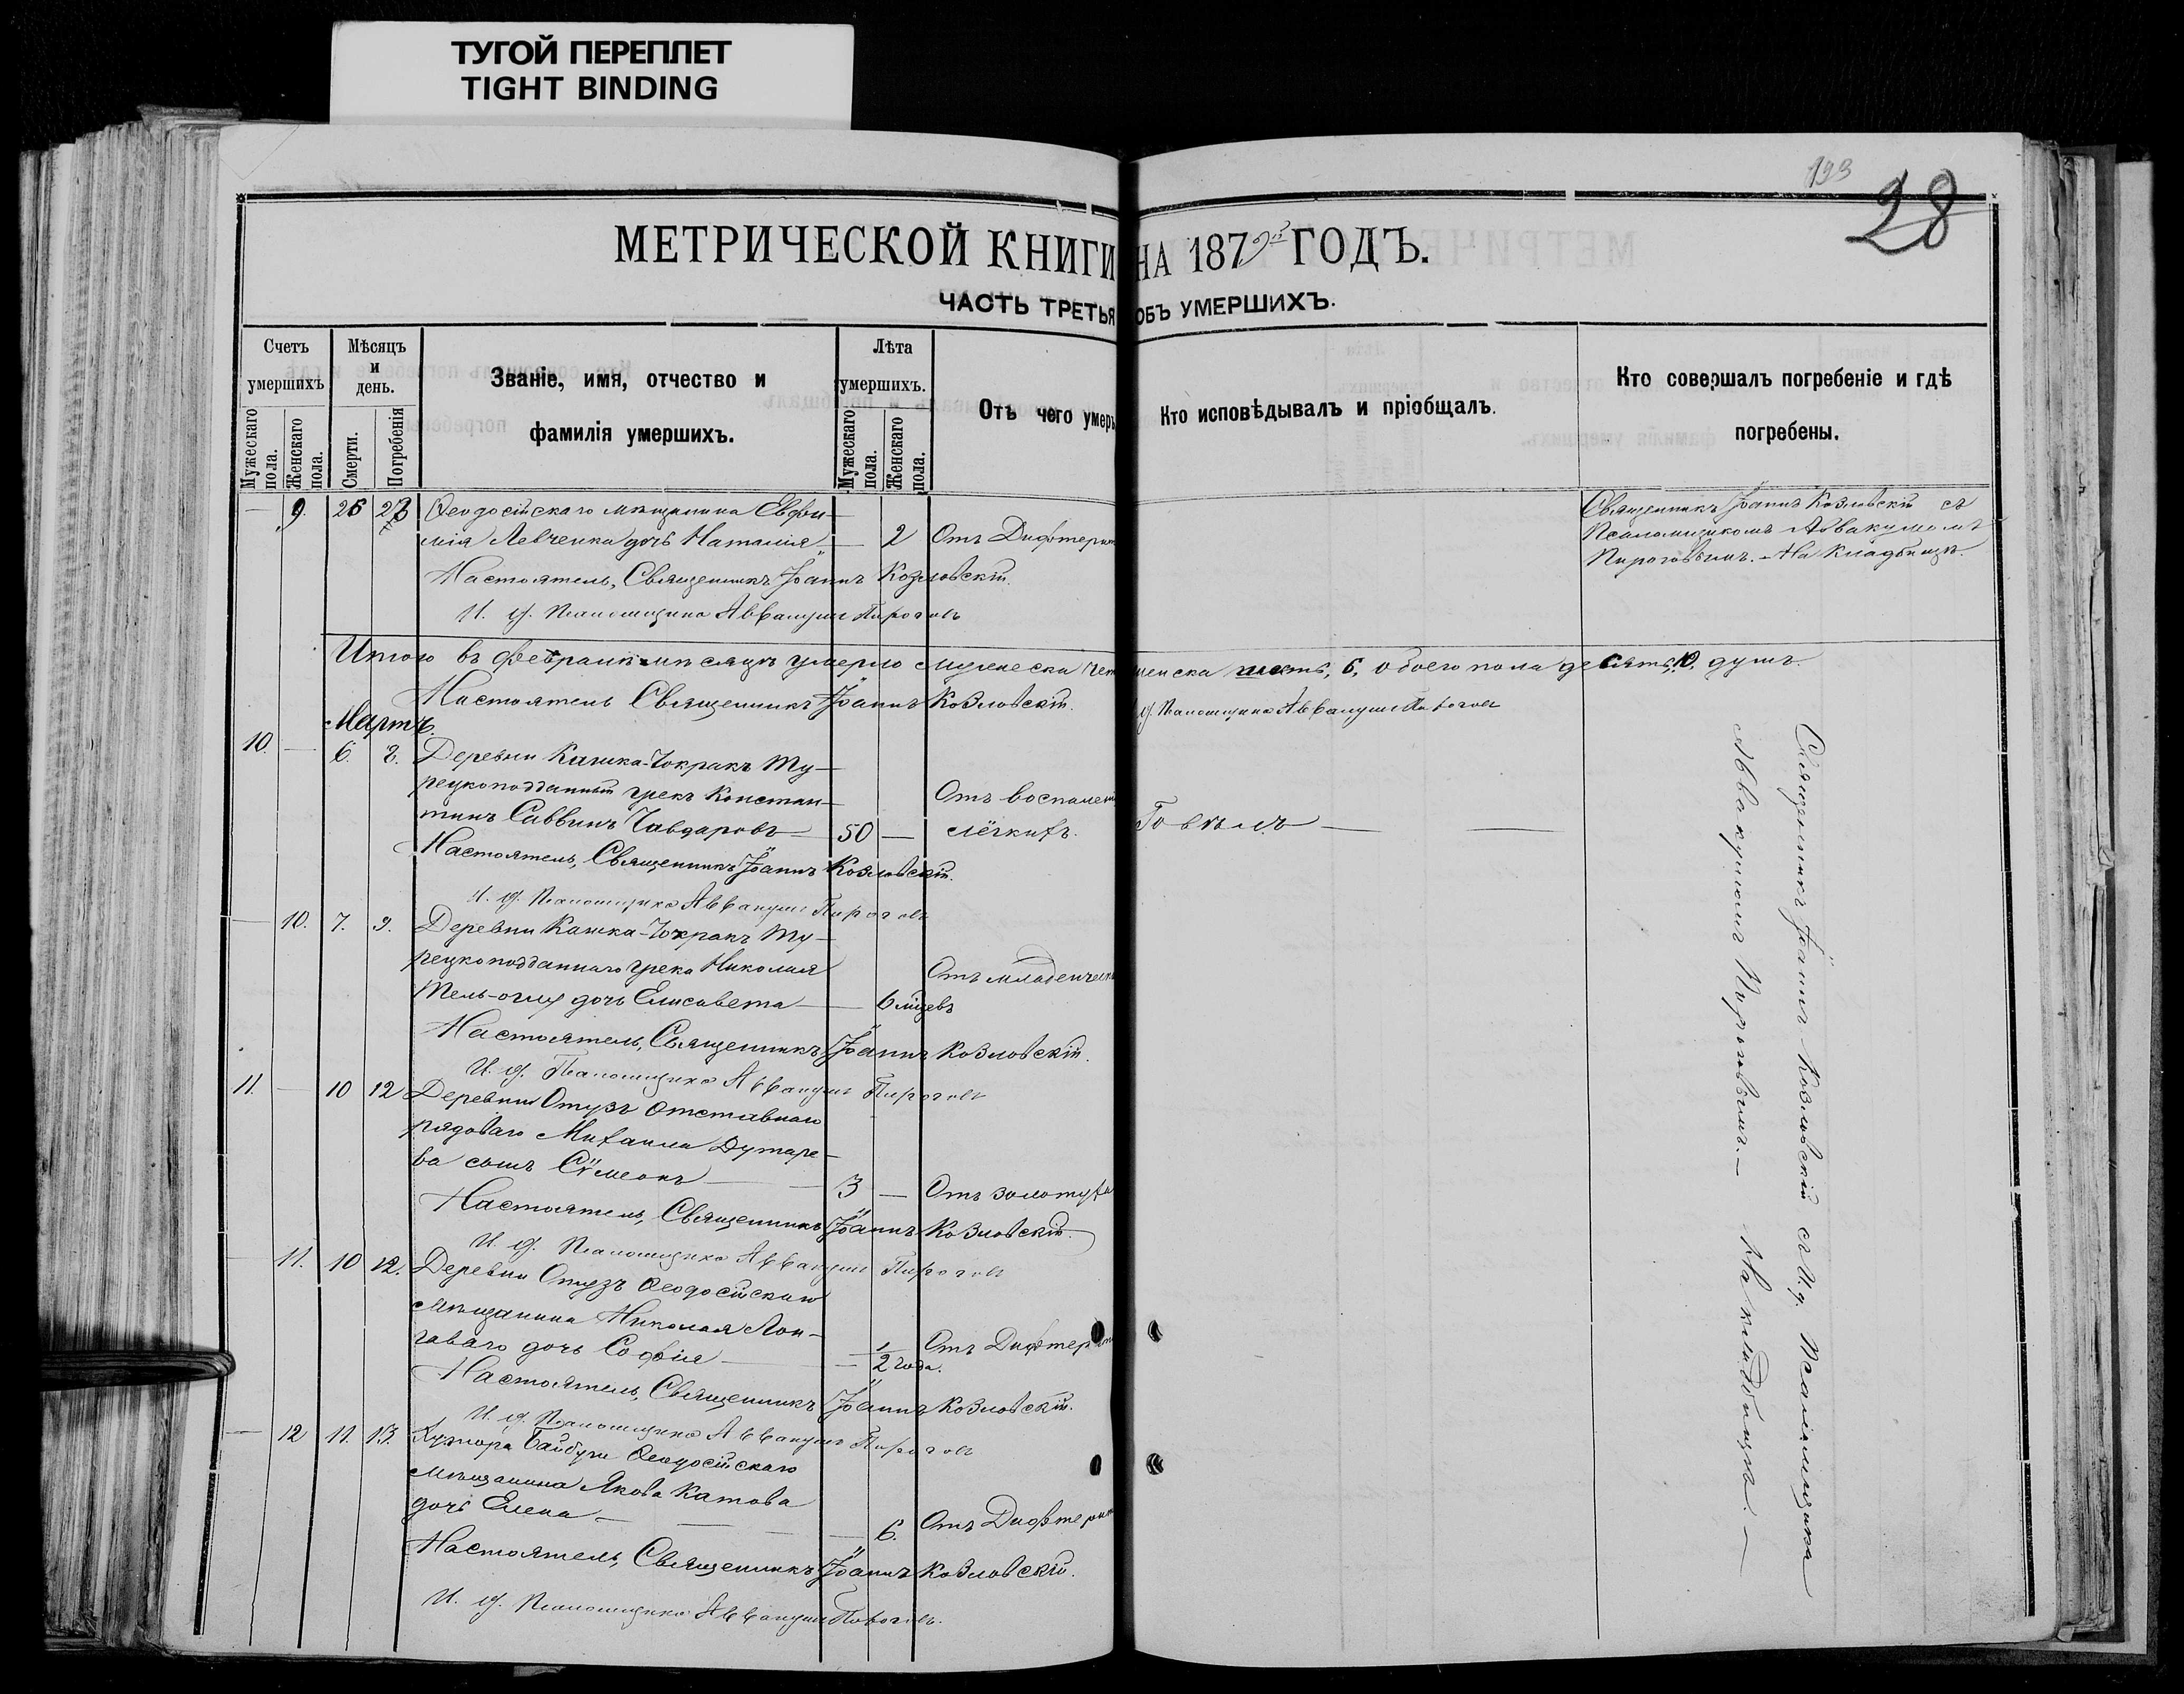 ТУГОЙ ПЕРЕПЛЕТ
TIGHT BINDING
193
28
МЕТРИЧЕСКОЙ КНИГИ НА 1879й ГОДЪ.
ЧАСТЬ ТРЕТЬЯ ОБЪ УМЕРШИХЪ.
Счетъ умершихъ
Мужескаго пола.
Женскаго пола.
Мѣсяцъ и день.
Смерти.
Погребенія
Званіе, имя, отчество и
фамилія умершихъ.
Лѣта умершихъ.
Мужескаго пола.
Женскаго пола.
Отъ чего умеръ
Кто исповѣдывалъ и пріобщалъ.
Кто совершалъ погребеніе и гдѣ
погребены.
— 9. 26 Ѳеодосійскаго мѣщанина Евфи-
мія Левченка дочь Наталія — 2 Отъ Дифтерит
Священникъ Іоаннъ Козловскій съ
Псаломщикомъ Аввакумомъ
Пироговымъ. На кладбищѣ.
Настоятель, Священникъ Іоаннъ Козловскій.
И. д. Псаломщика Аввакумъ Пироговъ
Итого въ Февралѣ мѣсяцѣ умерло мужеска чет женска шесть, 6, обоего пола десять, 10, душъ.
Настоятель Священникъ Іоаннъ Козловскій. д. Псаломщика Аввакумъ Пироговъ
Мартъ.
10. — 6. 8. Деревни Кишка-Чокракъ Ту-
рецкоподданный грекъ Констан-
тинъ Саввинъ Чавдаровъ — 50 — Отъ воспален
лёгкихъ. Говѣлъ —
Настоятель, Священникъ Іоаннъ Козловскій.
И. д. Псаломщика Аввакумъ Пироговъ
— 10. 7. 9. Деревни Кашка-Чокракъ Ту-
рецкоподданнаго грека Николая
Тель-оглу дочь Елисавета — 6 мѣцевъ Отъ младенческ
Настоятель, Священникъ Іоаннъ Козловскій.
И. д. Псаломщика Аввакумъ Пироговъ
11. — 10 12 Деревни Отузъ отставного
рядоваго Михаила Дутаре-
ва сынъ Сѵмеонъ — 3 — Отъ золотухи
Настоятель, Священникъ Іоаннъ Козловскій.
И. д. Псаломщика Аввакумъ Пироговъ
— 11. 10 12. Деревни Отузъ Ѳеодосійскаго
мѣщанина Николая Лон-
гаваго дочь Софія — 1/2 года. Отъ Дифтерит
Настоятель, Священникъ Іоаннъ Козловскій.
И. д. Псаломщика Аввакумъ Пироговъ
— 12 11. 13. Хутора Байбуги Ѳеодосійскаго
мѣщанина Якова Катова
дочь Елена — 6. Отъ Дифтерит
Настоятель, Священникъ Іоаннъ Козловскій.
И. д. Псаломщика Аввакумъ Пироговъ.
Священникъ Іоаннъ Козловскій съ И. д. Псаломщика
Аввакумомъ Пироговымъ. — На кладбищѣ. —